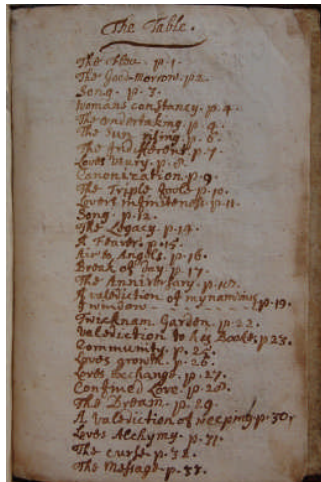 The Table.
The Flea. p. 1.
The Good-Morrow. p. 2.
Song. p. 3.
Womans constancy. p. 4.
The undertaking. p. 4.
The Sun rising. p. 6.
The Indifferent. p. 7.
Loves Usury. p. 8.
Canonization. p. 9
The Triple foole. p. 10.
Lovers infiniteness. p. 11.
Song. p. 12.
The Legacy. p. 14.
A Feaver. p. 15.
Air & Angels. p. 16.
Break of Day. p. 17.
The Anniversary. p.
A valediction of my name
in window p. 19.
Twicknam Garden. p. 22.
Valediction to his Booke. p. 23.
Community. p. 25.
Loves growth. p. 26.
Loves Exchange. p. 27.
Confined Love. p. 28.
The Dream. p. 29
A Valediction of weeping p. 30.
Loves Alchymy. p. 31.
The Curse. p. 32.
The Message. p. 33.